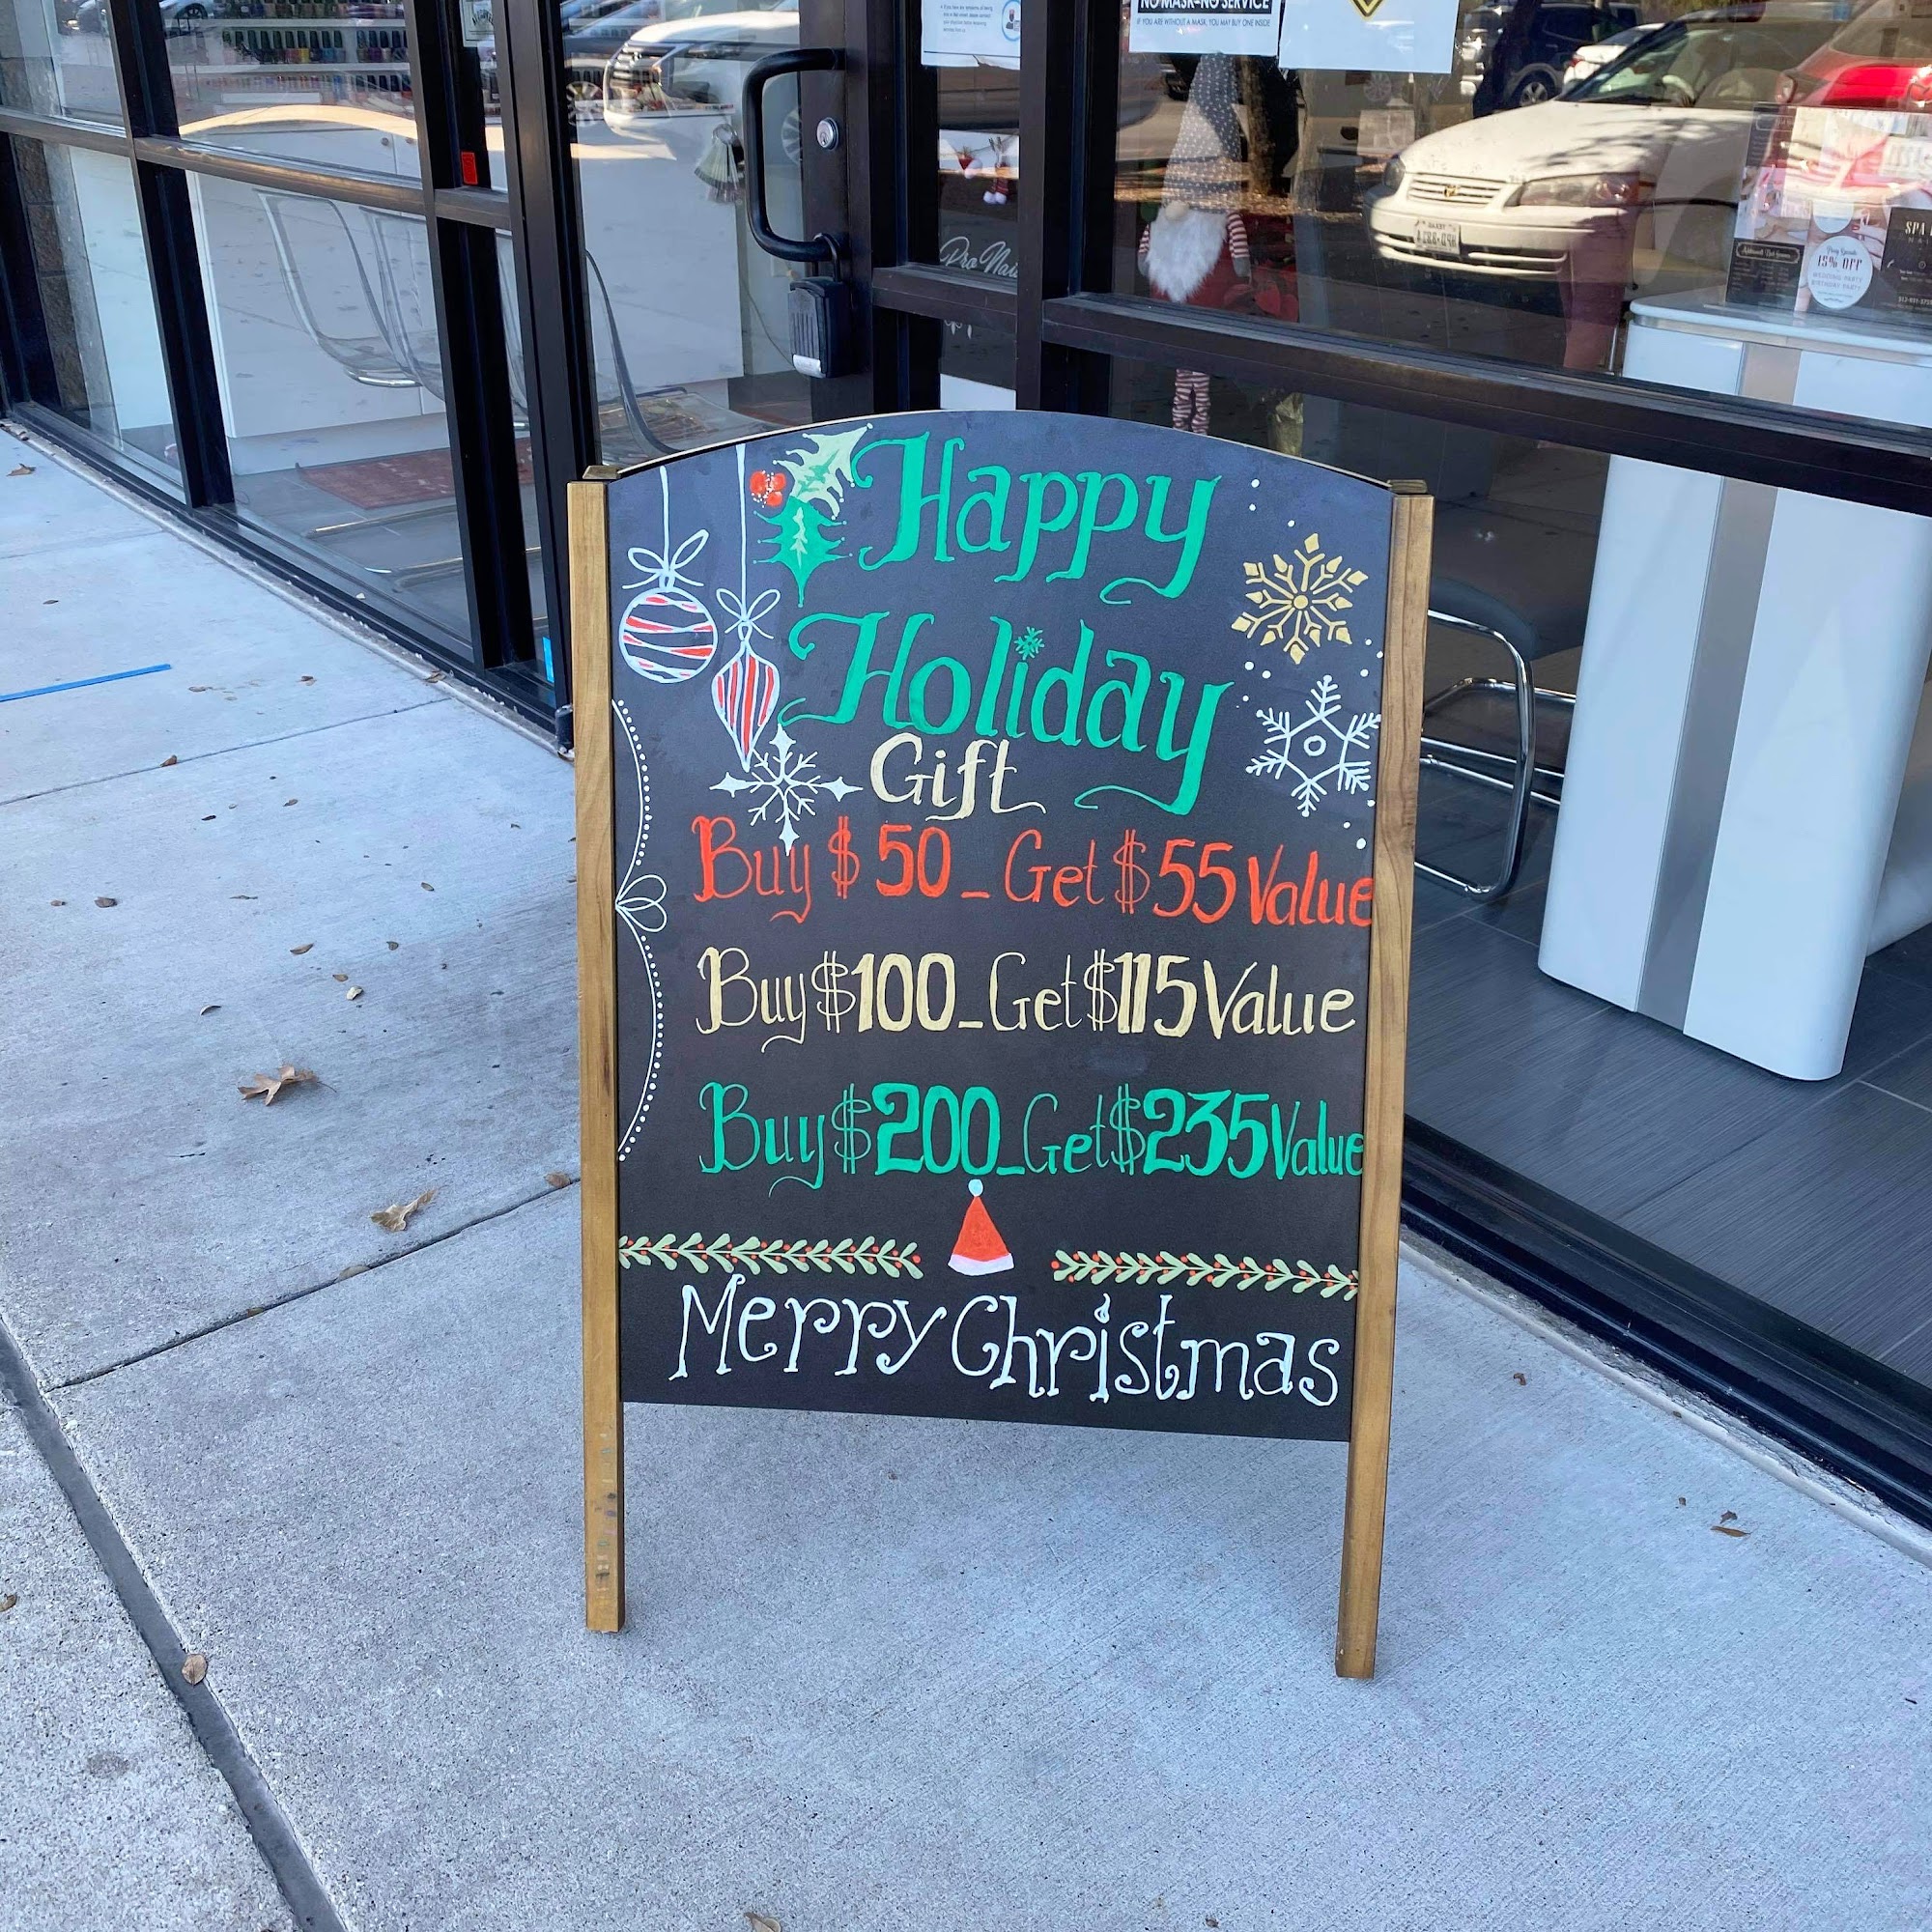 NO MASK-NO SERVICE
IF YOU ARE WITHOUT A MASK, YOU MAY BUY ONE INSIDE
Pro Nai
15% OFF
WEDDING PARTY
BIRTHDAY PARTY
SPA
Happy
Holiday
Gift
Buy $50_Get $55 Value
Buy $100_Get $115 Value
Buy $200_Get $235 Value
Merry Christmas